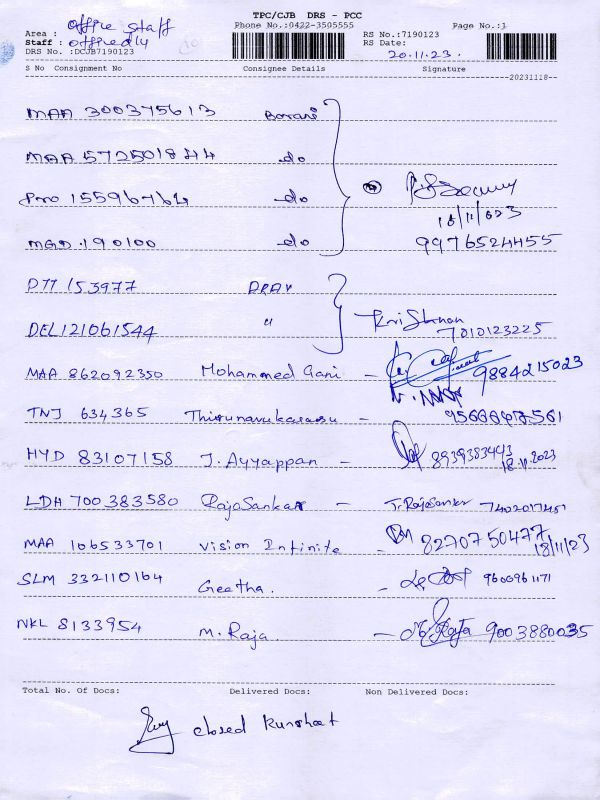 TPC/CJB DRS - PCC
Phone No.:0422-3505555 Page No.:1
Area : Office Staff RS No.:7190123
Staff : RS Date:
DRS No. :DCJB7190123 20.11.23.
S No Consignment No Consignee Details Signature
20231118
MAA 300375613
MAA 572501844 do
Pro 15596764 do
MGD 190100 do
18/11/023
9976524455
PTT 153977
DEL121061544 "
Krishnan
7010123225
MAA 862092350 Mohammed Gani - 9884215023
TNJ 634365 Thirunavukarasu -
HYD 83107158 J. Ayyappan - 8939383443
18.11.2023
LDH 700383580 RajaSankar - J. RajaSankar 7402017451
MAA 106533701 Vision Infinite - 8270750477
18/11/23
SLM 332110164 Geetha. - 9600961171
NKL 8133954 M. Raja - M. Raja 9003880035
Total No. Of Docs: Delivered Docs: Non Delivered Docs:
closed